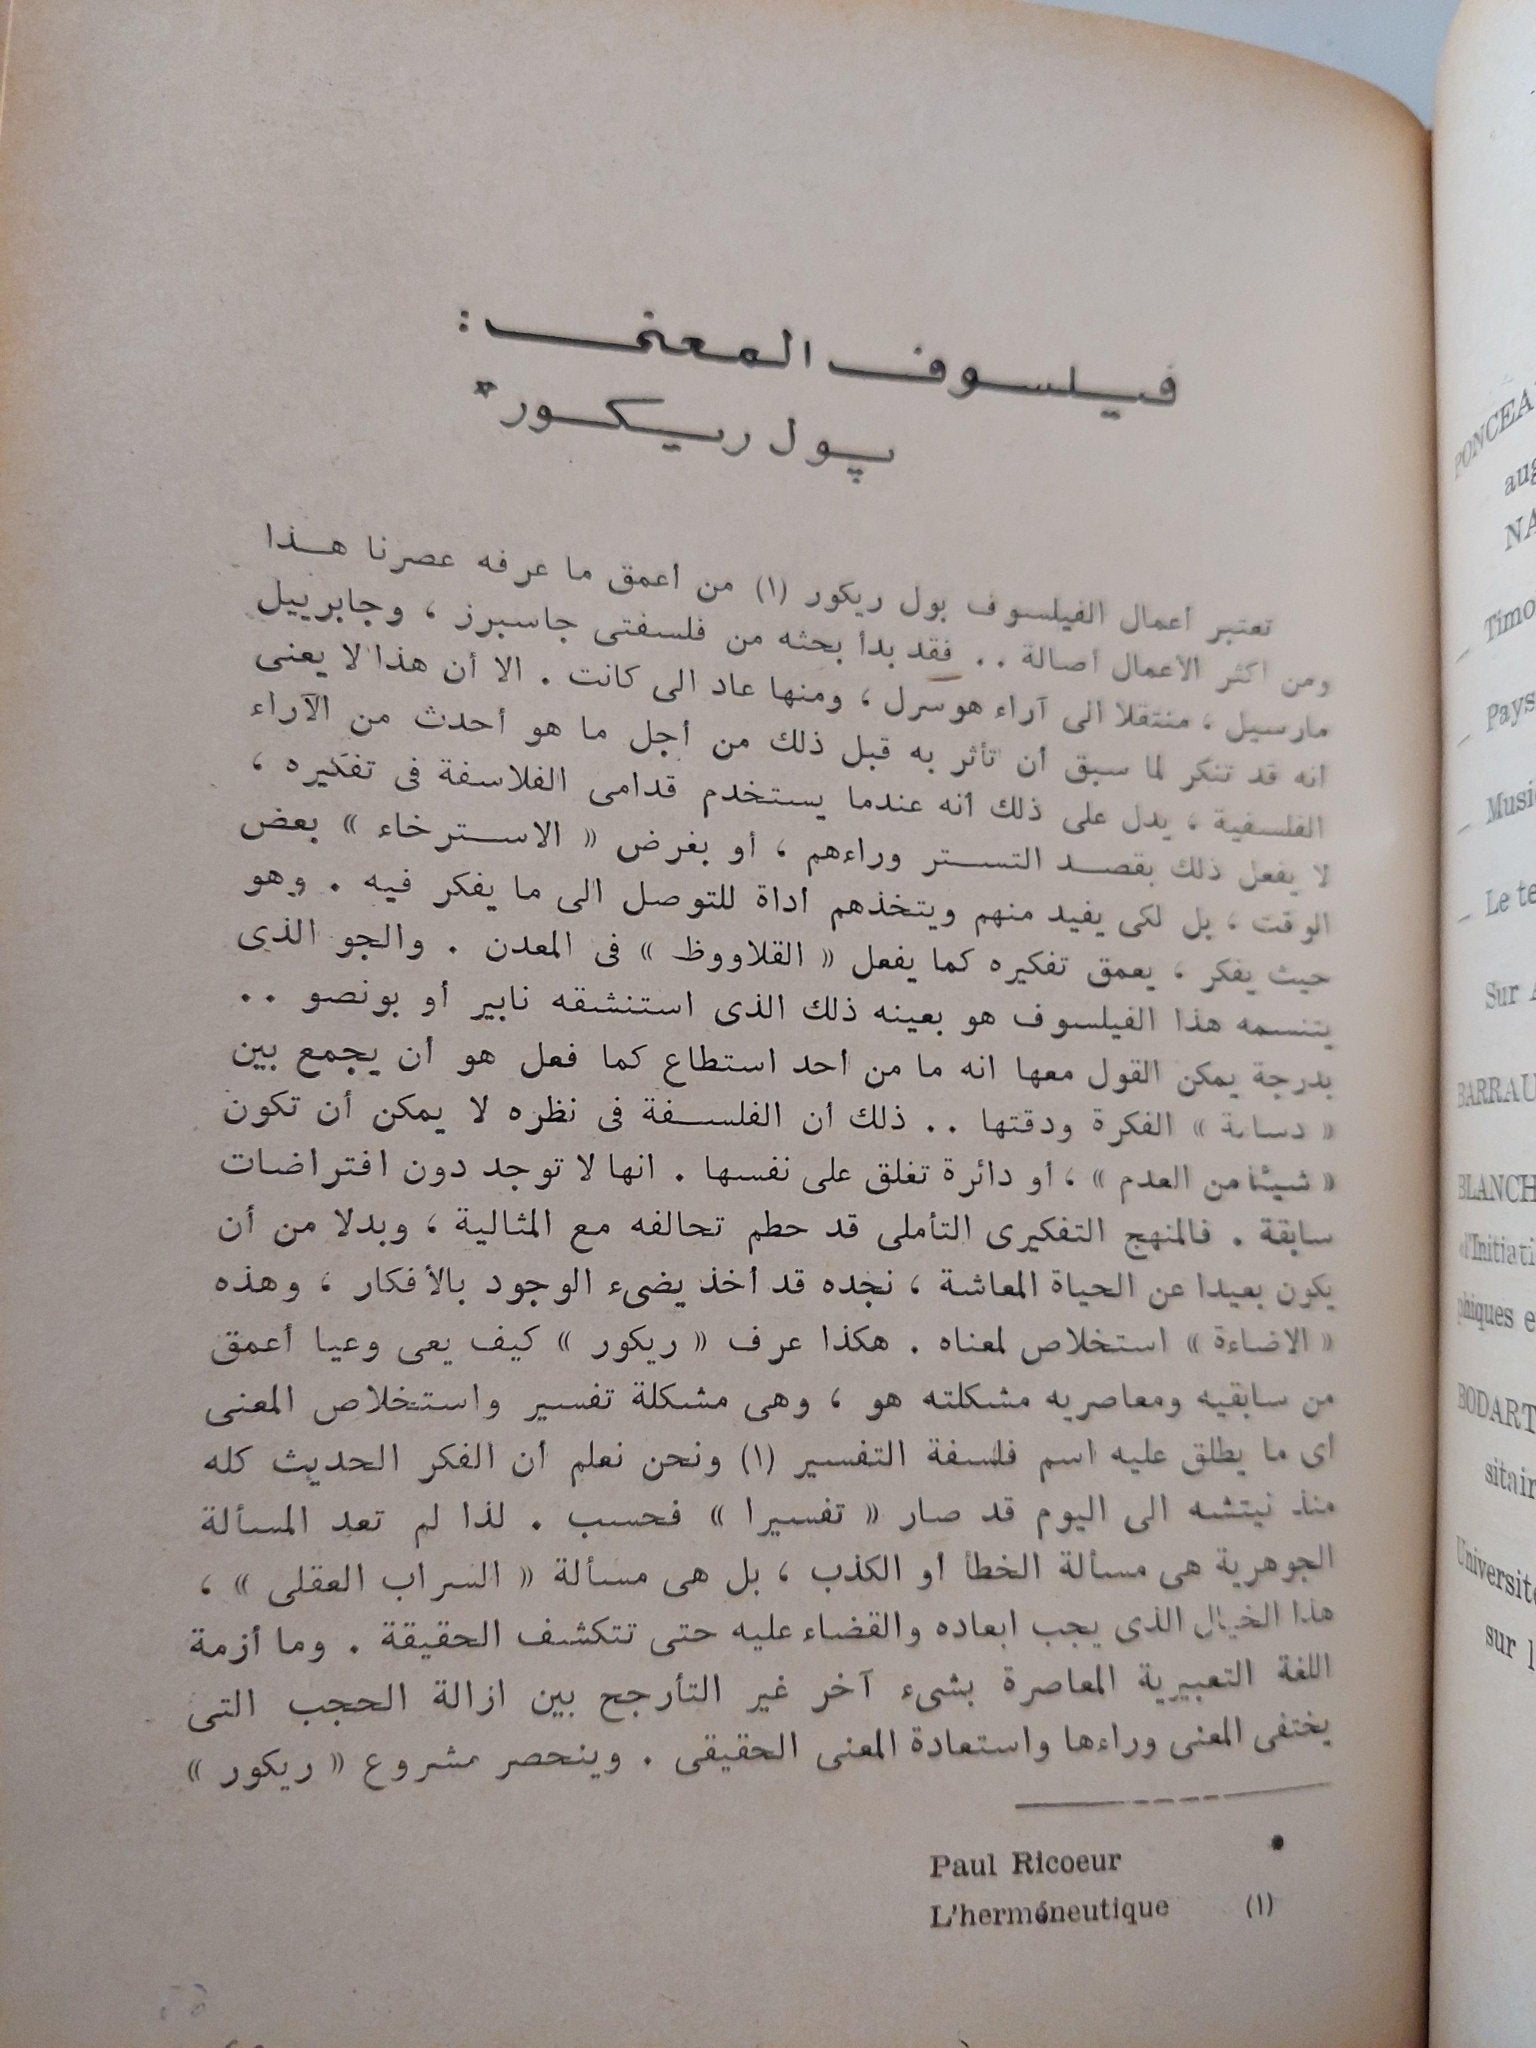 فيلسوف المعنى :
پول ريكور *
تعتبر أعمال الفيلسوف بول ريكور (١) من أعمق ما عرفه عصرنا هذا
ومن أكثر الأعمال أصالة .. فقد بدأ بحثه من فلسفتى جاسبرز ، وجابرييل
مارسيل ، منتقلا الى آراء هوسرل ، ومنها عاد الى كانت . الا أن هذا لا يعنى
انه قد تنكر لما سبق أن تأثر به قبل ذلك من أجل ما هو أحدث من الآراء
الفلسفية ، يدل على ذلك أنه عندما يستخدم قدامى الفلاسفة فى تفكيره ،
لا يفعل ذلك بقصد التستر وراءهم ، أو بغرض « الاسترخاء » بعض
الوقت ، بل لكى يفيد منهم ويتخذهم أداة للتوصل الى ما يفكر فيه . وهو
حيث يفكر ، يعمق تفكيره كما يفعل « القلاووظ » فى المعدن . والجو الذى
يتنسمه هذا الفيلسوف هو بعينه ذلك الذى استنشقه نابير أو بونصو ..
بدرجة يمكن القول معها انه ما من أحد استطاع كما فعل هو أن يجمع بين
« دسامة » الفكرة ودقتها .. ذلك أن الفلسفة فى نظره لا يمكن أن تكون
« شيئا من العدم » ، أو دائرة تغلق على نفسها . انها لا توجد دون افتراضات
سابقة . فالمنهج التفكيرى التأملى قد حطم تحالفه مع المثالية ، وبدلا من أن
يكون بعيدا عن الحياة المعاشة ، نجده قد أخذ يضىء الوجود بالأفكار ، وهذه
« الاضاءة » استخلاص لمعناه . هكذا عرف « ريكور » كيف يعى وعيا أعمق
من سابقيه ومعاصريه مشكلته هو ، وهى مشكلة تفسير واستخلاص المعنى
أى ما يطلق عليه اسم فلسفة التفسير (١) ونحن نعلم أن الفكر الحديث كله
منذ نيتشه الى اليوم قد صار « تفسيرا » فحسب . لذا لم تعد المسألة
الجوهرية هى مسألة الخطأ أو الكذب ، بل هى مسألة « السراب العقلى » ،
هذا الخيال الذى يجب ابعاده والقضاء عليه حتى تتكشف الحقيقة . وما أزمة
اللغة التعبيرية المعاصرة بشىء آخر غير التأرجح بين ازالة الحجب التى
يختفى المعنى وراءها واستعادة المعنى الحقيقى . وينحصر مشروع « ريكور »
• Paul Ricoeur
(١) L'herméneutique
PONCEA
aug
NA
_ Timo
_ Pays
_ Musi
_ Le te
Sur
BARRAU
BLANCH
d'Initiati
phiques e
BODART
sitair
Universit
sur l